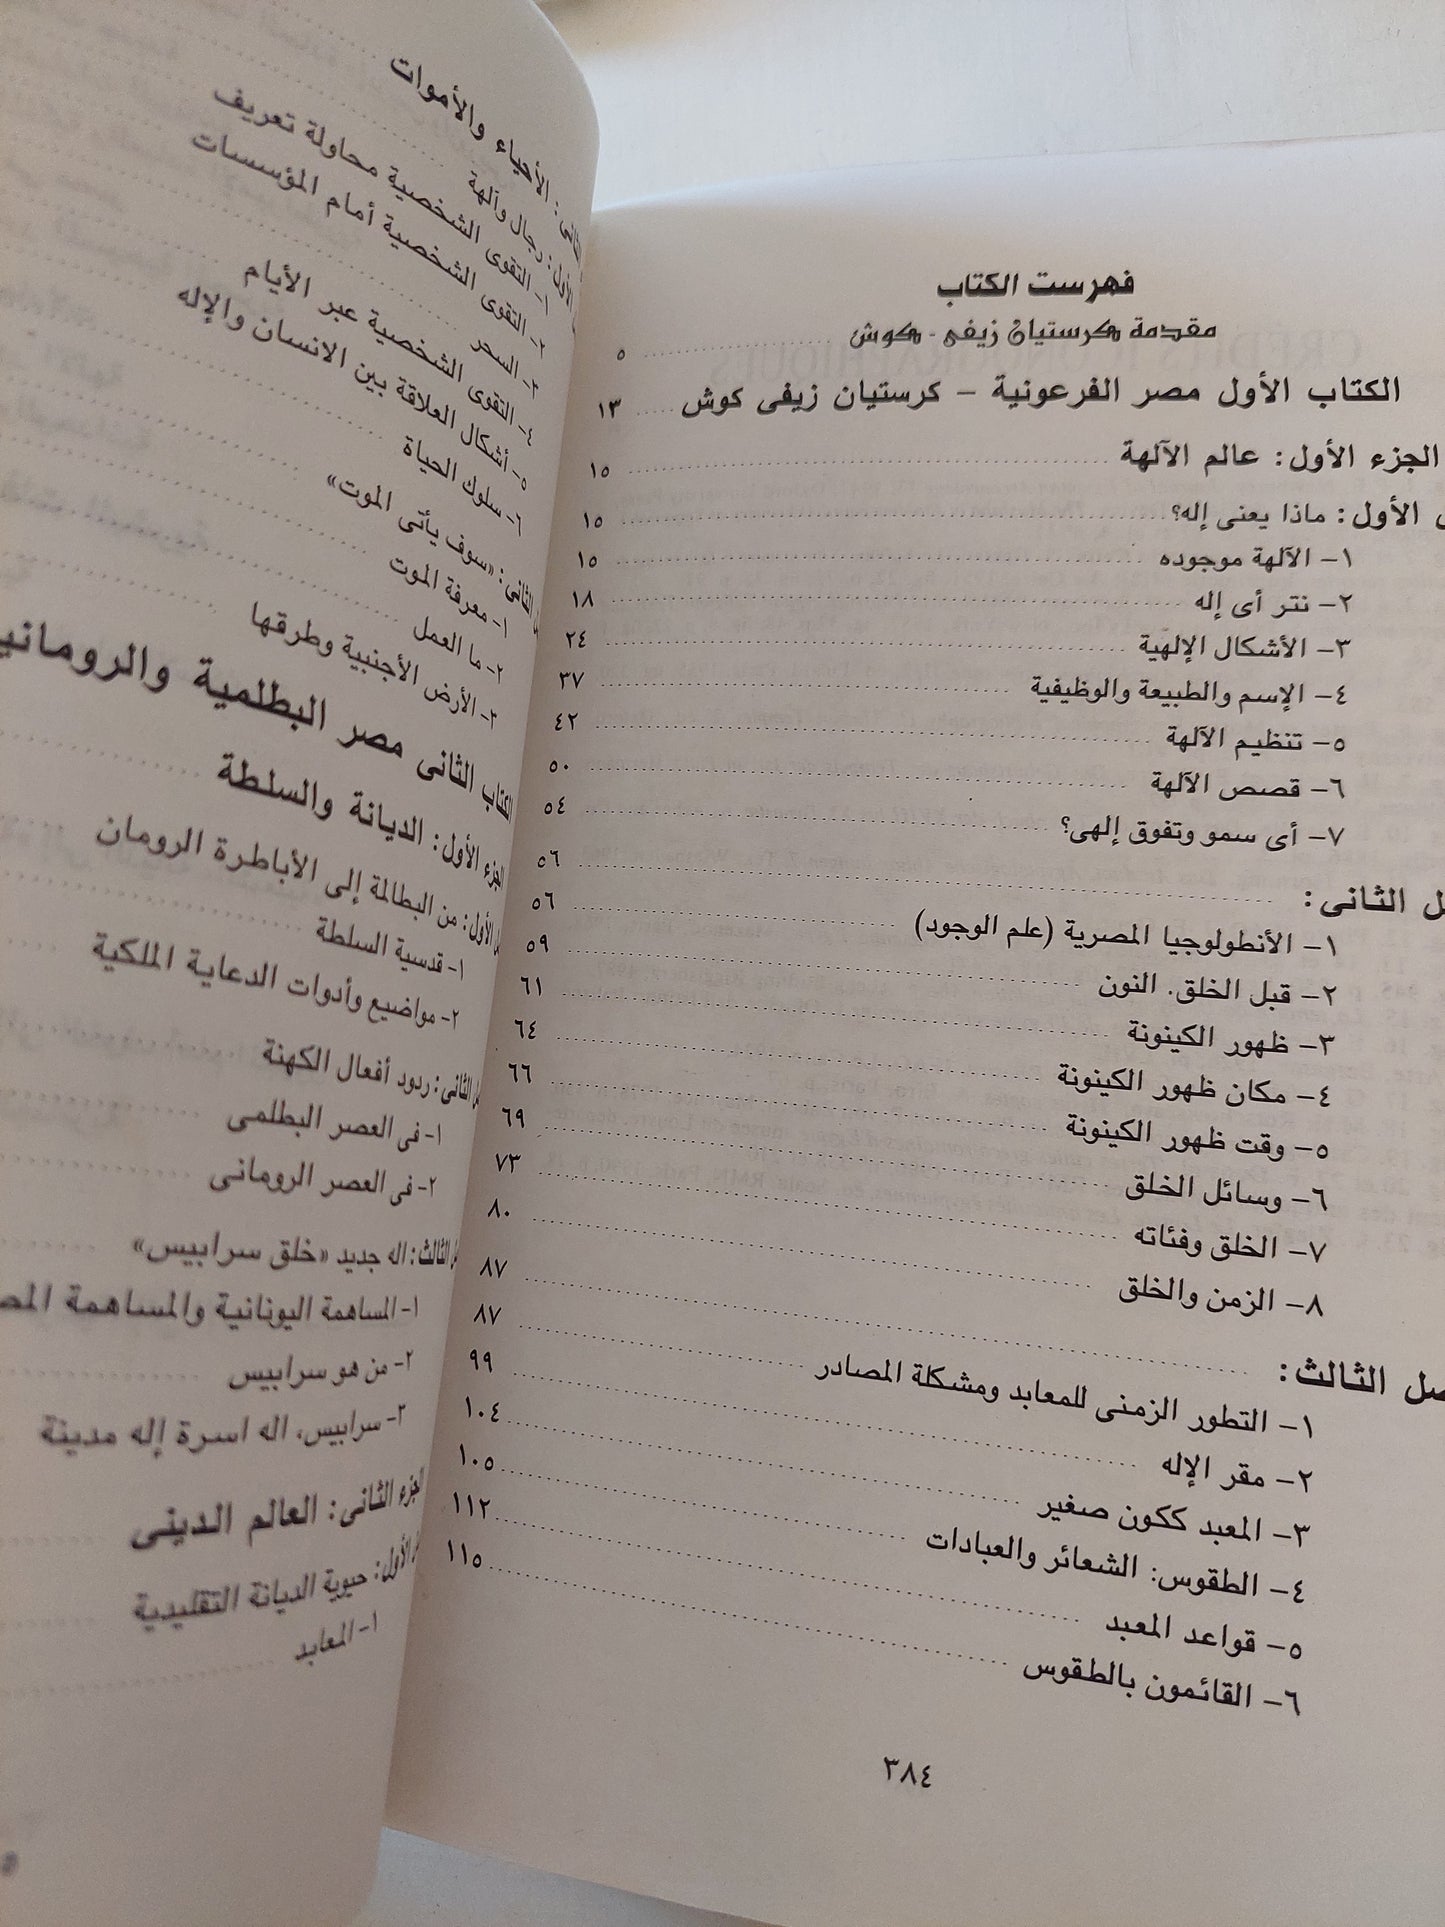 فهرست الكتاب
مقدمة كرستيان زيفى - كوش ٥
الكتاب الأول مصر الفرعونية – كرستيان زيفى كوش ١٣
الجزء الأول: عالم الآلهة ١٥
الأول: ماذا يعنى إله؟ ١٥
١- الآلهة موجوده ١٥
٢- نتر أى إله ١٨
٣- الأشكال الإلهية ٢٤
٤- الإسم والطبيعة والوظيفية ٣٧
٥- تنظيم الآلهة ٤٢
٦- قصص الآلهة ٥٠
٧- أى سمو وتفوق إلهى؟ ٥٤
الثانى: ٥٦
١- الأنطولوجيا المصرية (علم الوجود) ٥٦
٢- قبل الخلق. النون ٥٩
٣- ظهور الكينونة ٦١
٤- مكان ظهور الكينونة ٦٤
٥- وقت ظهور الكينونة ٦٦
٦- وسائل الخلق ٦٩
٧- الخلق وفئاته ٧٣
٨- الزمن والخلق ٨٠
صل الثالث: ٨٧
١- التطور الزمنى للمعابد ومشكلة المصادر ٨٧
٢- مقر الإله ٩٩
٣- المعبد ككون صغير ١٠٤
٤- الطقوس: الشعائر والعبادات ١٠٥
٥- قواعد المعبد ١١٢
٦- القائمون بالطقوس ١١٥
٣٨٤
الثانى: الأحياء والأموات
الأول: رجال وآلهة
١- التقوى الشخصية محاولة تعريف
٢- التقوى الشخصية أمام المؤسسات
٣- السحر
٤- التقوى الشخصية عبر الأيام
٥- أشكال العلاقة بين الانسان والإله
٦- سلوك الحياة
الثانى: «سوف يأتى الموت»
١- معرفة الموت
٢- ما العمل
٣- الأرض الأجنبية وطرقها
الكتاب الثانى مصر البطلمية والرومانية
الجزء الأول: الديانة والسلطة
الأول: من البطالمة إلى الأباطرة الرومان
١- قدسية السلطة
٢- مواضيع وأدوات الدعاية الملكية
الثانى: ردود أفعال الكهنة
١- فى العصر البطلمى
٢- فى العصر الرومانى
الثالث: اله جديد «خلق سرابيس»
١- المساهمة اليونانية والمساهمة المص
٢- من هو سرابيس
٢- سرابيس، اله اسرة إله مدينة
الجزء الثانى: العالم الدينى
الأول: حيوية الديانة التقليدية
١- المعابد